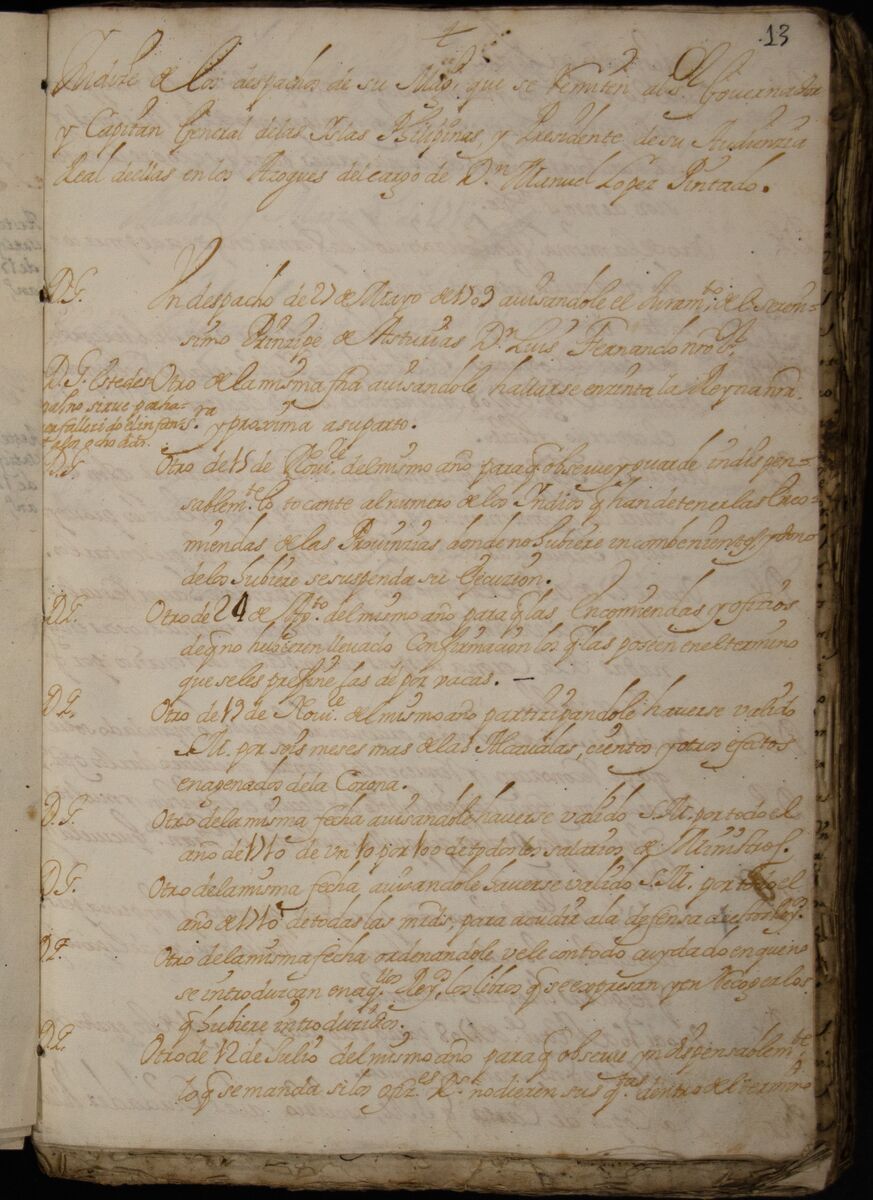 13
Indize de los despachos de su Magd. que se remiten al Sr. Governador
y Capitan General delas Yslas Philipinas, y Presidente de su Audienzia
Real deellas en los Azogues del cargo de Dn. Manuel Lopez Pintado.
D.P. Un despacho de 27 de Mayo de 1709 avisandole el Juramto. de el Seren-
simo Prinzipe de Asturias Dn. Luis Fernando nro
D.P. Este des Otro de la misma fha avisandole hallarse enzinta la Reyna nra.
pacho no sirve por ha-
ver fallezido el infante
a los ocho dias Sra. y proxima a su parto.
D.P. Otro de 15 de Nove. del mismo año para q observe y guarde indispen-
sablemte. lo tocante al numero de los Indios q han de tener las Enco-
miendas de las Provinzias donde no hubiere incombeniente, y donde
lo hubiere se suspenda su Ejecuzion.
D.P. Otro de 24 de del mismo año para q las Encomiendas y ofizios
de q no hubieren llevado Confirmazion los q las poseen en el termino
que se les prefine las dé por vacas.
D.P. Otro de 19 de Nove. del mismo año partizipandole haverse valido
S.M. por seis meses mas de las Alcavalas, cientos y otros efectos
enagenados de la Corona.
D.P. Otro de la misma fecha avisandole haverse valido S.M. por todo el
año de 1710 de un 10 por 100 de todos los salarios de Ministros.
D.P. Otro de la misma fecha avisandole haverse valido S.M. por todo el
año de 1710 de todas las mrds, para acudir a la defensa de estos Reys.
D.P. Otro de la misma fecha ordenandole vele con todo cuydado en que no
se introduzcan en aqllos. Reys. los libros q se expresan y en recoger los
q hubiere introduzidos.
D.P. Otro de 12 de Julio del mismo año para q observe yndispensablemte.
lo q se manda si los ofizes. Rs. no dieren sus qtas. dentro del termino